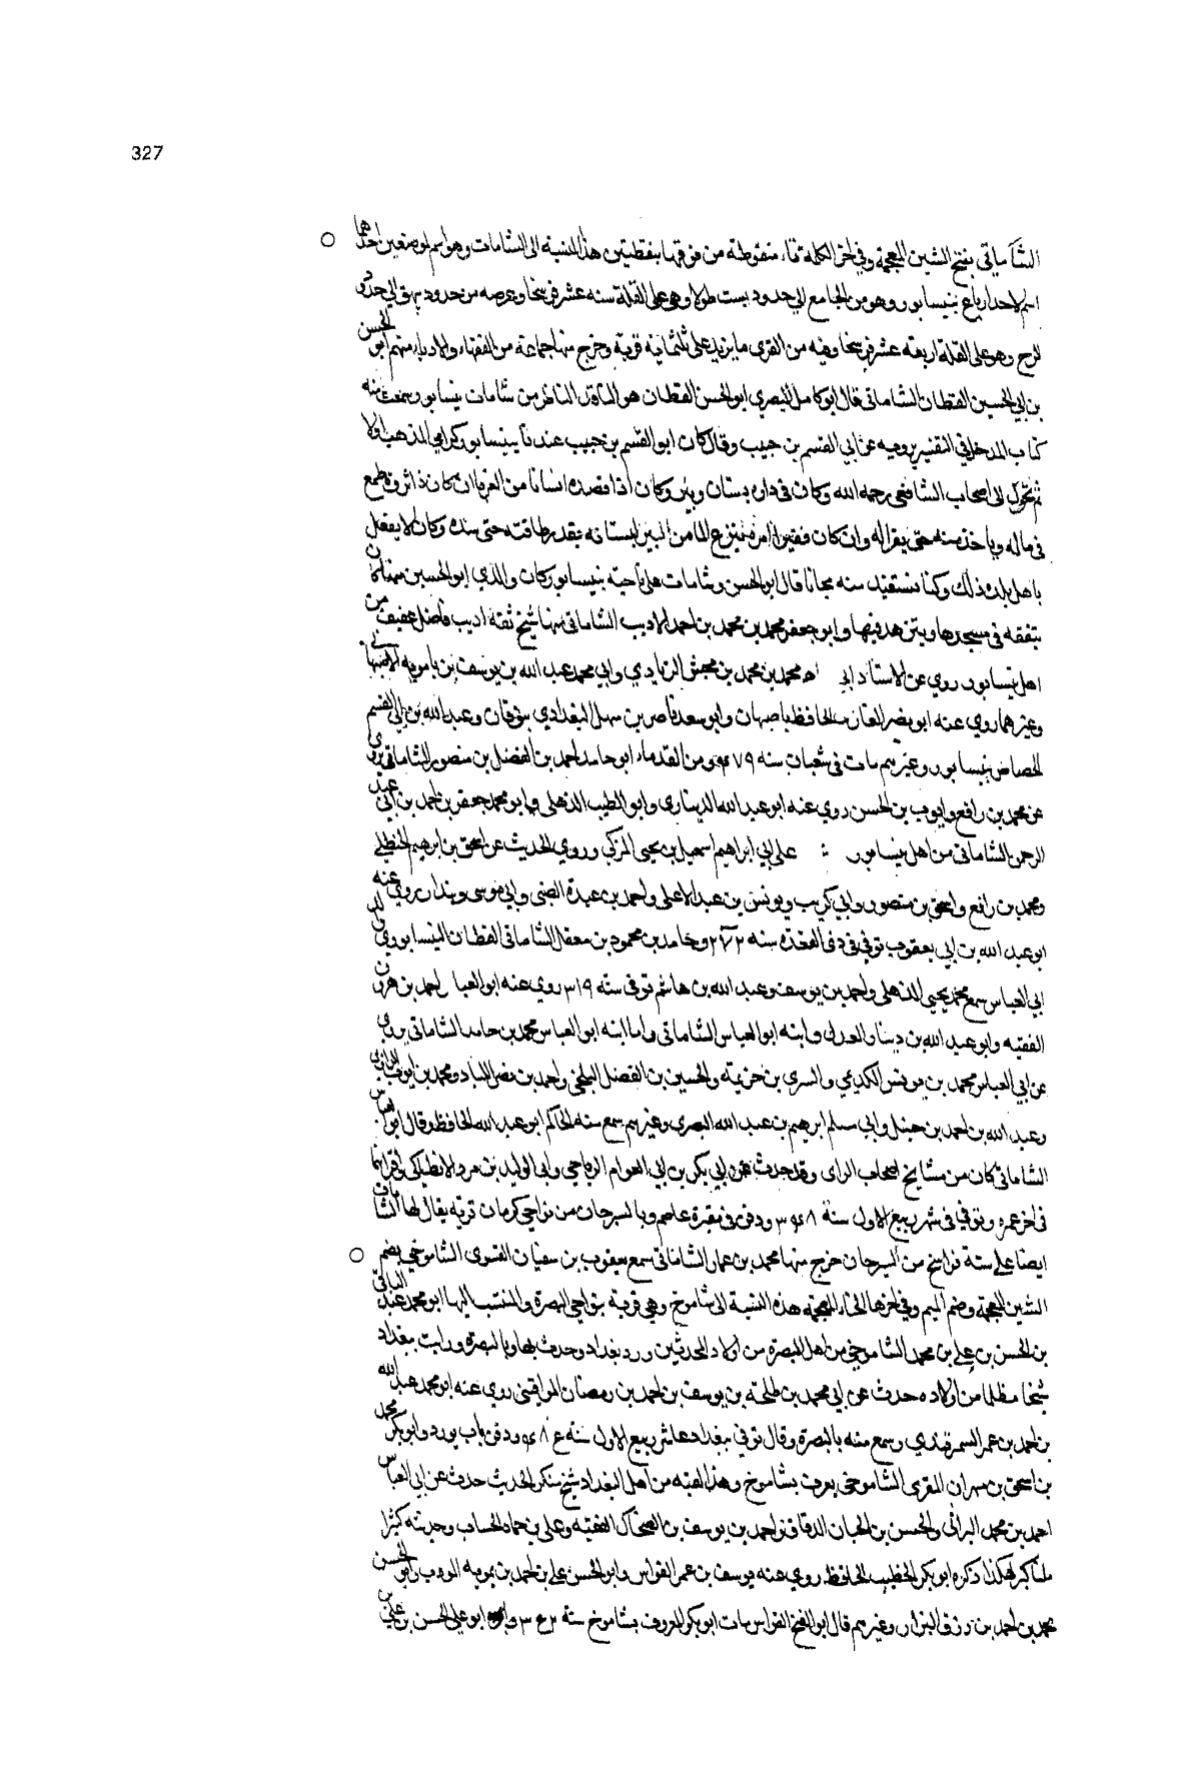 327
الشاماتي بفتح الشين المعجمة وفي اخر الكلمة تاء منقوطة من فوقها بنقطتين هذه النسبة الى الشامات وهو اسم لموضعين احدهما
اسم لاحد ارباع نيسابور وهو من الجامع الى حدود بست طولا وهو على القلة ستة عشر فرسخا وعرضه من حدود بيهق الى حدود
الرخ وهو على القلة اربعة عشر فرسخا وفيه من القرى ما يزيد على ثلثماية قرية وخرج منها جماعة من الفقهاء والادباء منهم ابو الحسن
بن ابي الحسين القطان الشاماتي قال ابو كامل البصري ابو الحسن القطان هو الناظر من شامات نيسابور سمعت منه
كتاب المدخل في التفسير يرويه عن ابي القسم بن حبيب وقال كان ابو القسم بن حبيب عندنا بنيسابور كرامي المذهب اولا
ثم تحول الى اصحاب الشافعي رحمه الله وكان في داره بستان وبير وكان اذا قصده انسانا من الغرباء ان كان ذا ثروة طمع
في ماله وياخذ منه حتى يقرا له وان كان فقيرا امره بنزع الماء من البير لبستانه بقدر طاقته حتى وكان لا يفعل
باهل بلده ذلك وكنا نستفيد منه مجانا قال ابو الحسن وشامات على ناحية بنيسابور وكان والدي ابو الحسين
يتفقه في مسجدها ويتزهد فيها وابو جعفر محمد بن محمد بن احمد الاديب الشاماتي منها شيخ ثقة اديب فاضل عفيف من
اهل نيسابور روي عن الاستاذ ابي محمد بن محمد بن محمش الزيادي وابي محمد عبد الله بن يوسف بن بامويه الاصبهاني
وغيرهما روي عنه ابو نصر الحافظ باصبهان وابو سعد ناصر بن سهل البغدادي بنوقان وعبد الله بن ابي القسم
الحصاص بنيسابور وغيرهم مات في شعبان سنه ومن القدماء ابو حامد احمد بن الفضل بن منصور الشاماتي يروي
عن محمد بن رافع وايوب بن الحسن روي عنه ابو عبد الله الديناري وابو الطيب الذهلي وابو محمد جعفر بن احمد بن ابي عبد
الرحمن الشاماتي من اهل نيسابور على ابي ابراهيم اسمعيل بن يحيى المزني وروي الحديث عن اسحق بن ابرهيم الحنظلي
ومحمد بن رافع واسحق بن منصور وابي كريب ويونس بن عبد الاعلى واحمد بن عبدة الضبي وابي موسى وبندار روي عنه
ابو عبد الله بن ابي يعقوب توفي في ذي القعدة سنه وحامد بن محمود بن معقل الشاماتي القطان النيسابوري والد
ابي العباس سمع محمد يحيى الذهلي واحمد بن يوسف وعبد الله بن هاشم توفي سنة ٣١٩ روي عنه ابو العبا احمد بن هرون
الفقيه وابو عبد الله بن دينار العدل وابنه ابو العباس الشاماتي واما ابنه ابو العباس محمد بن حامد الشاماتي يروي
عن ابي العباس محمد بن يونس الكديمي والسري بن خزيمة والحسين بن الفضل البجلي واحمد بن نصر اللباد ومحمد بن ايوب الرازي
وعبد الله بن احمد بن حنبل وابي مسلم ابرهيم بن عبد الله البصري وغيرهم سمع منه الحاكم ابو عبد الله الحافظ وقال ابو العباس
الشاماتي كان من مشايخ اصحاب الراى وقد حدث عن ابي بكر بن ابي العوام الرياحي وابي الوليد بن برد الانطاكي واقرانهما
في اخر عمره وتوفي في شهر ربيع الاول سنة ودفن في مقبرة عاصم وبالسيرجان من نواحي كرمان قرية يقال لها الشامات
ايضا على ستة فراسخ من السيرجان خرج منها محمد بن عمار الشاماتي سمع يعقوب بن سفيان الفسوى الشاموخي بضم
الشين المعجمة وضم الميم وفي اخرها الخاء المعجمة هذه النسبة الى شاموخ وهي قرية بنواحي البصرة والمنتسب اليها ابو محمد عبد الباقي
بن الحسن بن علي بن محمد الشاموخي من اهل البصرة من اولاد المحدثين ورد بغداد وحدث بها وبالبصرة ورايت ببغداد
شيخا من اولاده حدث عن ابي محمد بن طلحة بن يوسف بن احمد بن رمضان المواقيتي روي عنه ابو محمد عبد الله
بن احمد بن عمر السمرقندي وسمع منه بالبصرة وقال توفي ببغداد عاشر ربيع الاول سنة ودفن باب وابو بكر محمد
بن اسحق بن مهران المقري الشاموخي يعرف بشاموخ وهذا لقبه من اهل البغداد شيخ منكر الحديث حدث عن ابي العباس
احمد بن محمد البراثي والحسن بن الحباب الدقاق واحمد بن يوسف بن الضحاك الفقيه وعلي بن حماد الخشاب وحديثه كثير
المناكير هكذا ذكره ابو بكر الخطيب الحافظ روي عنه يوسف بن عمر القواس وابو الحسن علي بن احمد بن المودب وابو الحسن
محمد بن احمد بن رزق البزار وغيرهم قال ابو الفتح القواس مات ابو بكر المعروف بشاموخ سنة ابو علي الحسن بن علي بن